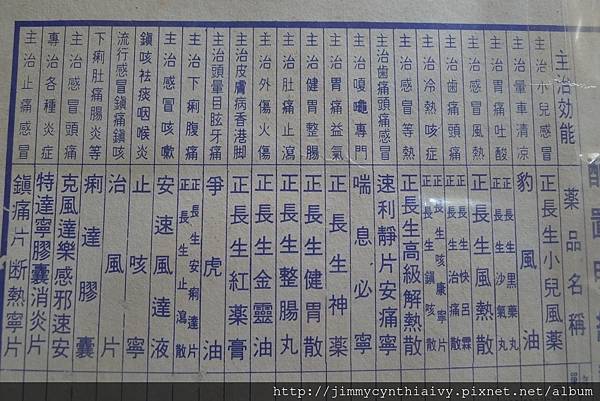 主治効能
藥品名稱
主治小兒感冒
正長生小兒風藥
主治暈車清凉
豹風油
主治胃痛吐酸
正長生黑藥丸
正長生沙氣丸
主治感冒風熱
正長生風熱散
主治歯痛頭痛
正長生快呂霖
正長生治痛散
主治冷熱咳症
正長生咳康寧片
正長生鎮咳散
主治感冒等熱
正長生高級解熱散
主治歯痛頭痛感冒
速利靜片安痛寧
主治嗄嚨專門
喘息必寧
主治胃痛益氣
正長生神藥
主治健胃整腸
正長生健胃散
主治肚痛止瀉
正長生整腸丸
主治外傷火傷
正長生金靈油
主治皮膚病香港脚
正長生紅藥膏
主治頭暈目眩牙痛
爭虎油
主治下痢腹痛
正長生安痢達片
正長生止瀉散
主治感冒咳嗽
安速風達液
鎮咳袪痰咽喉炎
止咳寧
流行感冒鎮痛鎮咳
治風片
下痢肚痛腸炎等
痢達膠囊
主治感冒頭痛
克風達樂感邪速安
專治各種炎症
特達寧膠囊消炎片
主治止痛感冒
鎮痛片断熱寧片
http://jimmycynthiaivy.pixnet.net/album